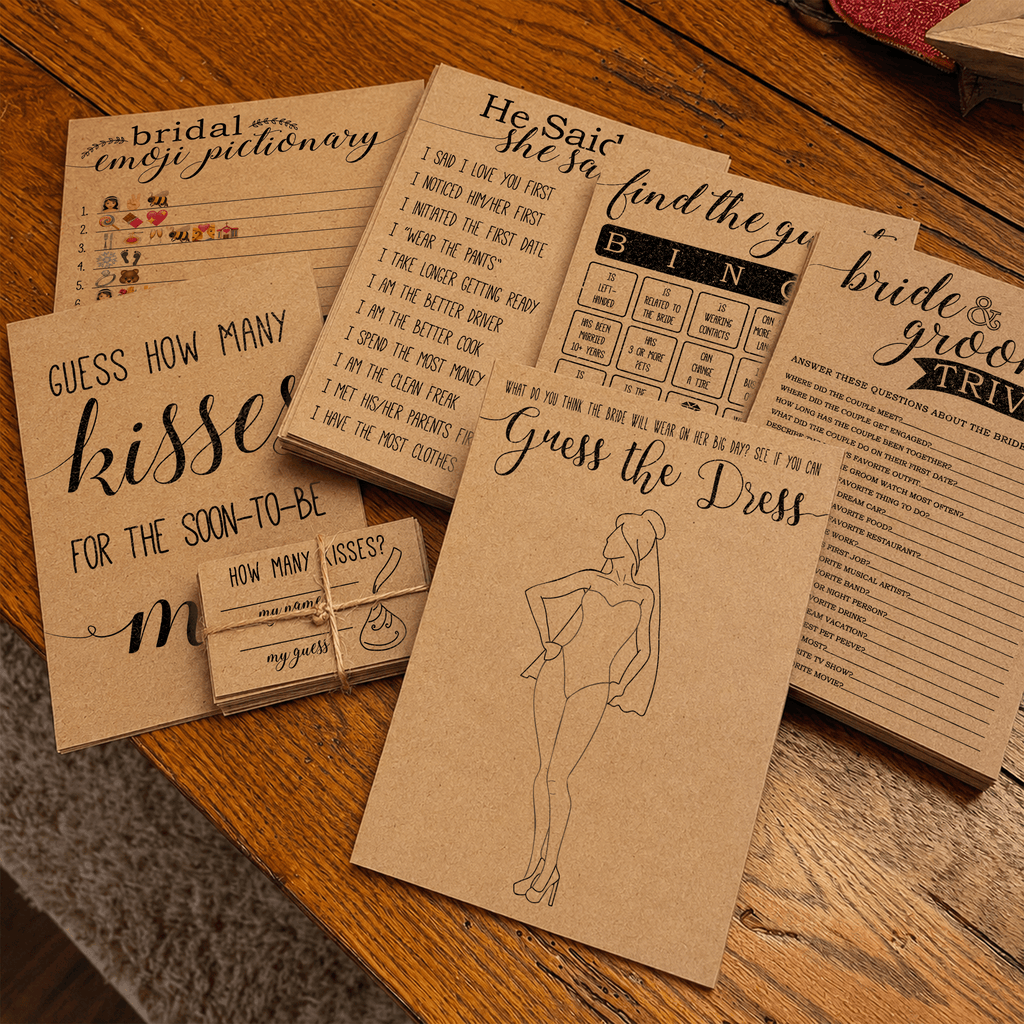 bridal
emoji pictionary
1.
2.
3.
4.
5.
6
He Said
she sa
I SAID I LOVE YOU FIRST
I NOTICED HIM/HER FIRST
I INITIATED THE FIRST DATE
I "WEAR THE PANTS"
I TAKE LONGER GETTING READY
I AM THE BETTER DRIVER
I AM THE BETTER COOK
I SPEND THE MOST MONEY
I AM THE CLEAN FREAK
I MET HIS/HER PARENTS FIR
I HAVE THE MOST CLOTHES
find the gu
B I N G
IS LEFT-HANDED
IS RELATED TO THE BRIDE
IS WEARING CONTACTS
CAN MORE LAN
HAS BEEN MARRIED 10+ YEARS
HAS 3 OR MORE PETS
CAN CHANGE A TIRE
IS
IS THE
bride &
groo
TRIV
ANSWER THESE QUESTIONS ABOUT THE BRIDE
WHERE DID THE COUPLE MEET?
WHERE DID THE COUPLE GET ENGAGED?
HOW LONG HAS THE COUPLE BEEN TOGETHER?
WHAT DID THE COUPLE DO ON THEIR FIRST DATE?
DESCRIBE
'S FAVORITE OUTFIT
GROOM WATCH MOST OFTEN?
FAVORITE THING TO DO?
DREAM CAR?
FAVORITE FOOD?
FAVORITE RESTAURANT?
WORK?
FIRST JOB?
ORITE MUSICAL ARTIST?
VORITE BAND?
OR NIGHT PERSON?
VORITE DRINK?
EAM VACATION?
EST PET PEEVE?
MOST?
RITE TV SHOW?
RITE MOVIE?
GUESS HOW MANY
kisses
FOR THE SOON-TO-BE
m
HOW MANY KISSES?
my name
my guess
WHAT DO YOU THINK THE BRIDE WILL WEAR ON HER BIG DAY? SEE IF YOU CAN
Guess the Dress